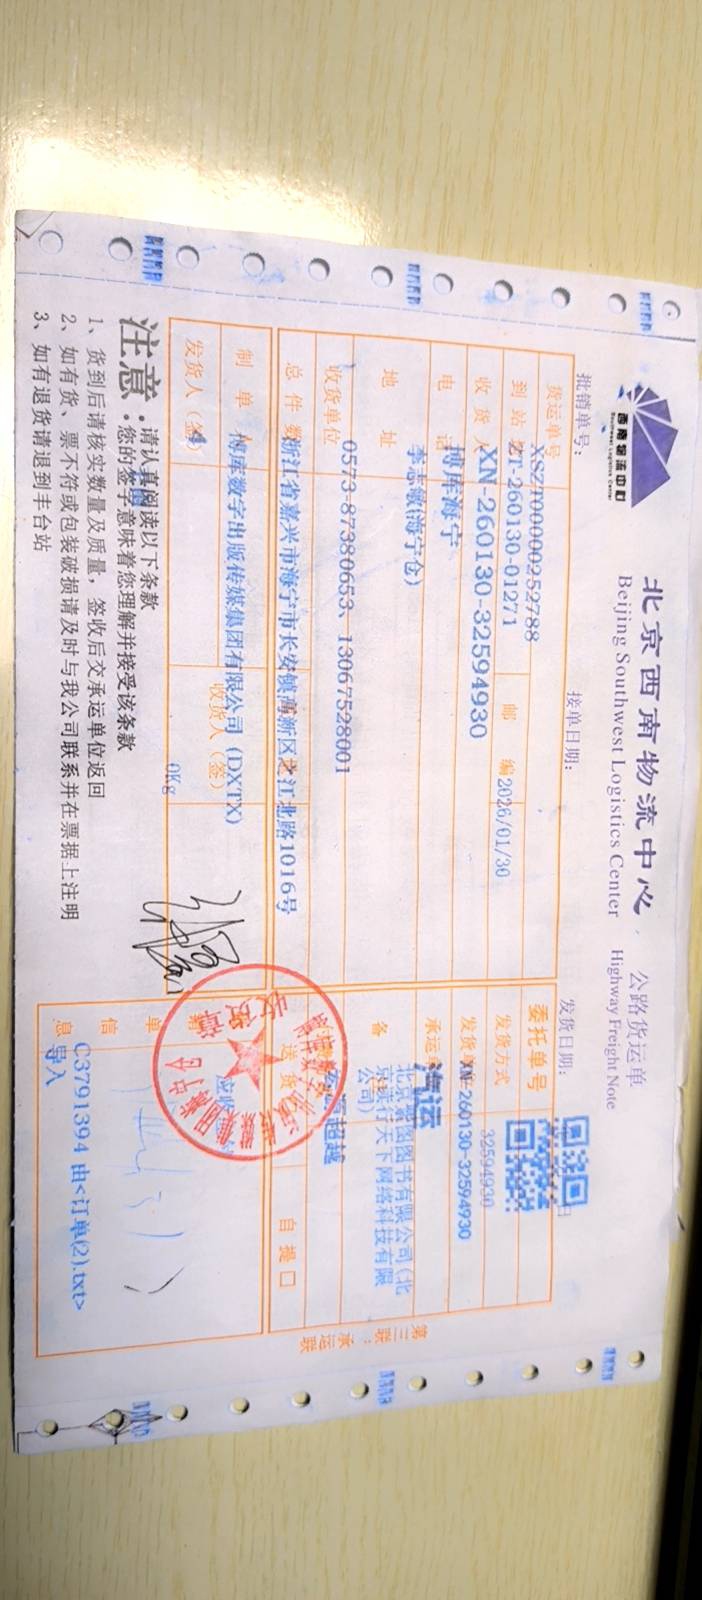 西南物流中心
Southwest Logistics Center
北京西南物流中心
Beijing Southwest Logistics Center
公路货运单
Highway Freight Note
批销单号：
接单日期：
发货日期：
日
货运单号
XSZT000000252788
委托单号
32594930
到站
ZT-260130-01271
邮编
2026/01/30
发货方式
XN-260130-32594930
收货人
XN-260130-32594930
发货单
汽运
电话
博库海宁
承运
北京景图图书有限公司(北京读行天下网络科技有限公司)
地址
李志敏(海宁仓)
备
收货单位
0573-87380653、13067528001
超越
总件数
浙江省嘉兴市海宁市长安镇高新区之江北路1016号
送货
自提口
制单
博库数字出版传媒集团有限公司 (DXTX)
收货人（签）
应收
发货人（签）
4
0Kg
单
信
息
C3791394 由<订单(2).txt>
导入
收货章
第三联：承运联
注意：
请认真阅读以下条款
您的签字意味着您理解并接受该条款
1、货到后请核实数量及质量，签收后交承运单位返回
2、如有货、票不符或包装破损请及时与我公司联系并在票据上注明
3、如有退货请退到丰台站